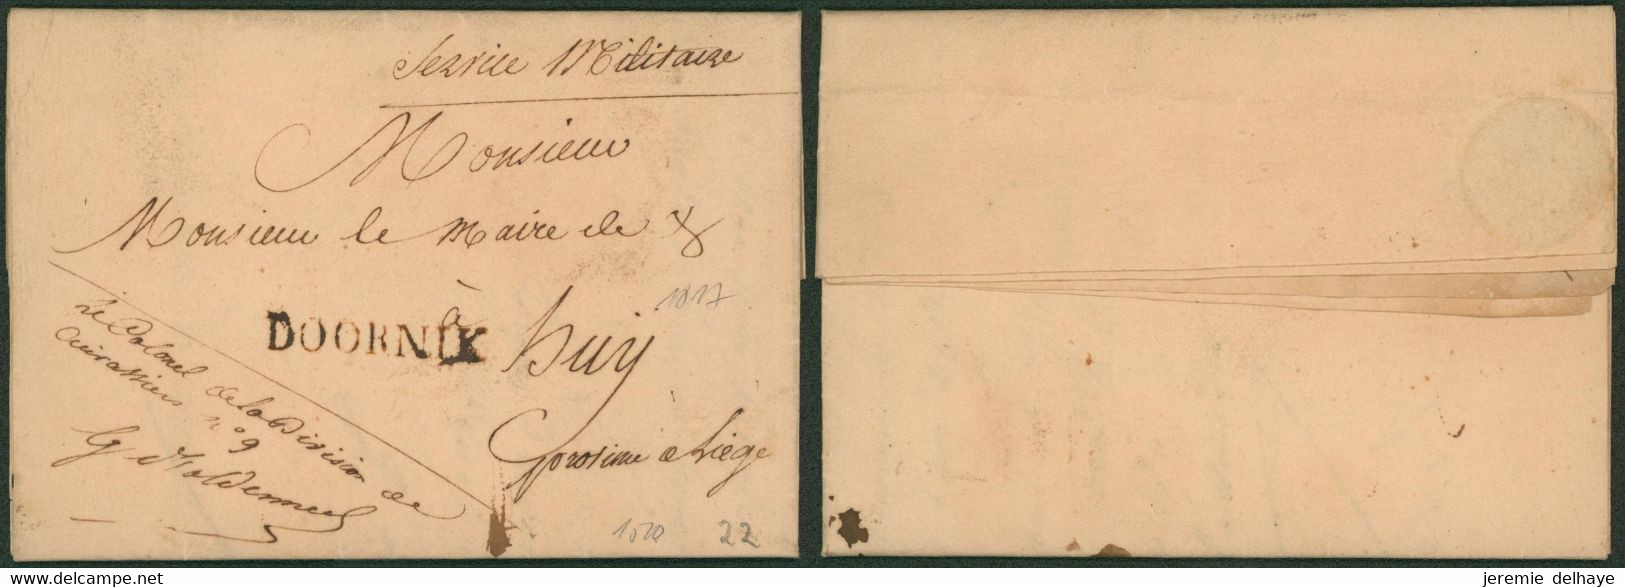 Service Militaire
Monsieur
Monsieur le Maire de &
1817
à
DOORNIK Huy
Le Colonel de la Division de
Cuirassiers n° 9
province de Liège
22
delcampe.net
jeremie delhaye